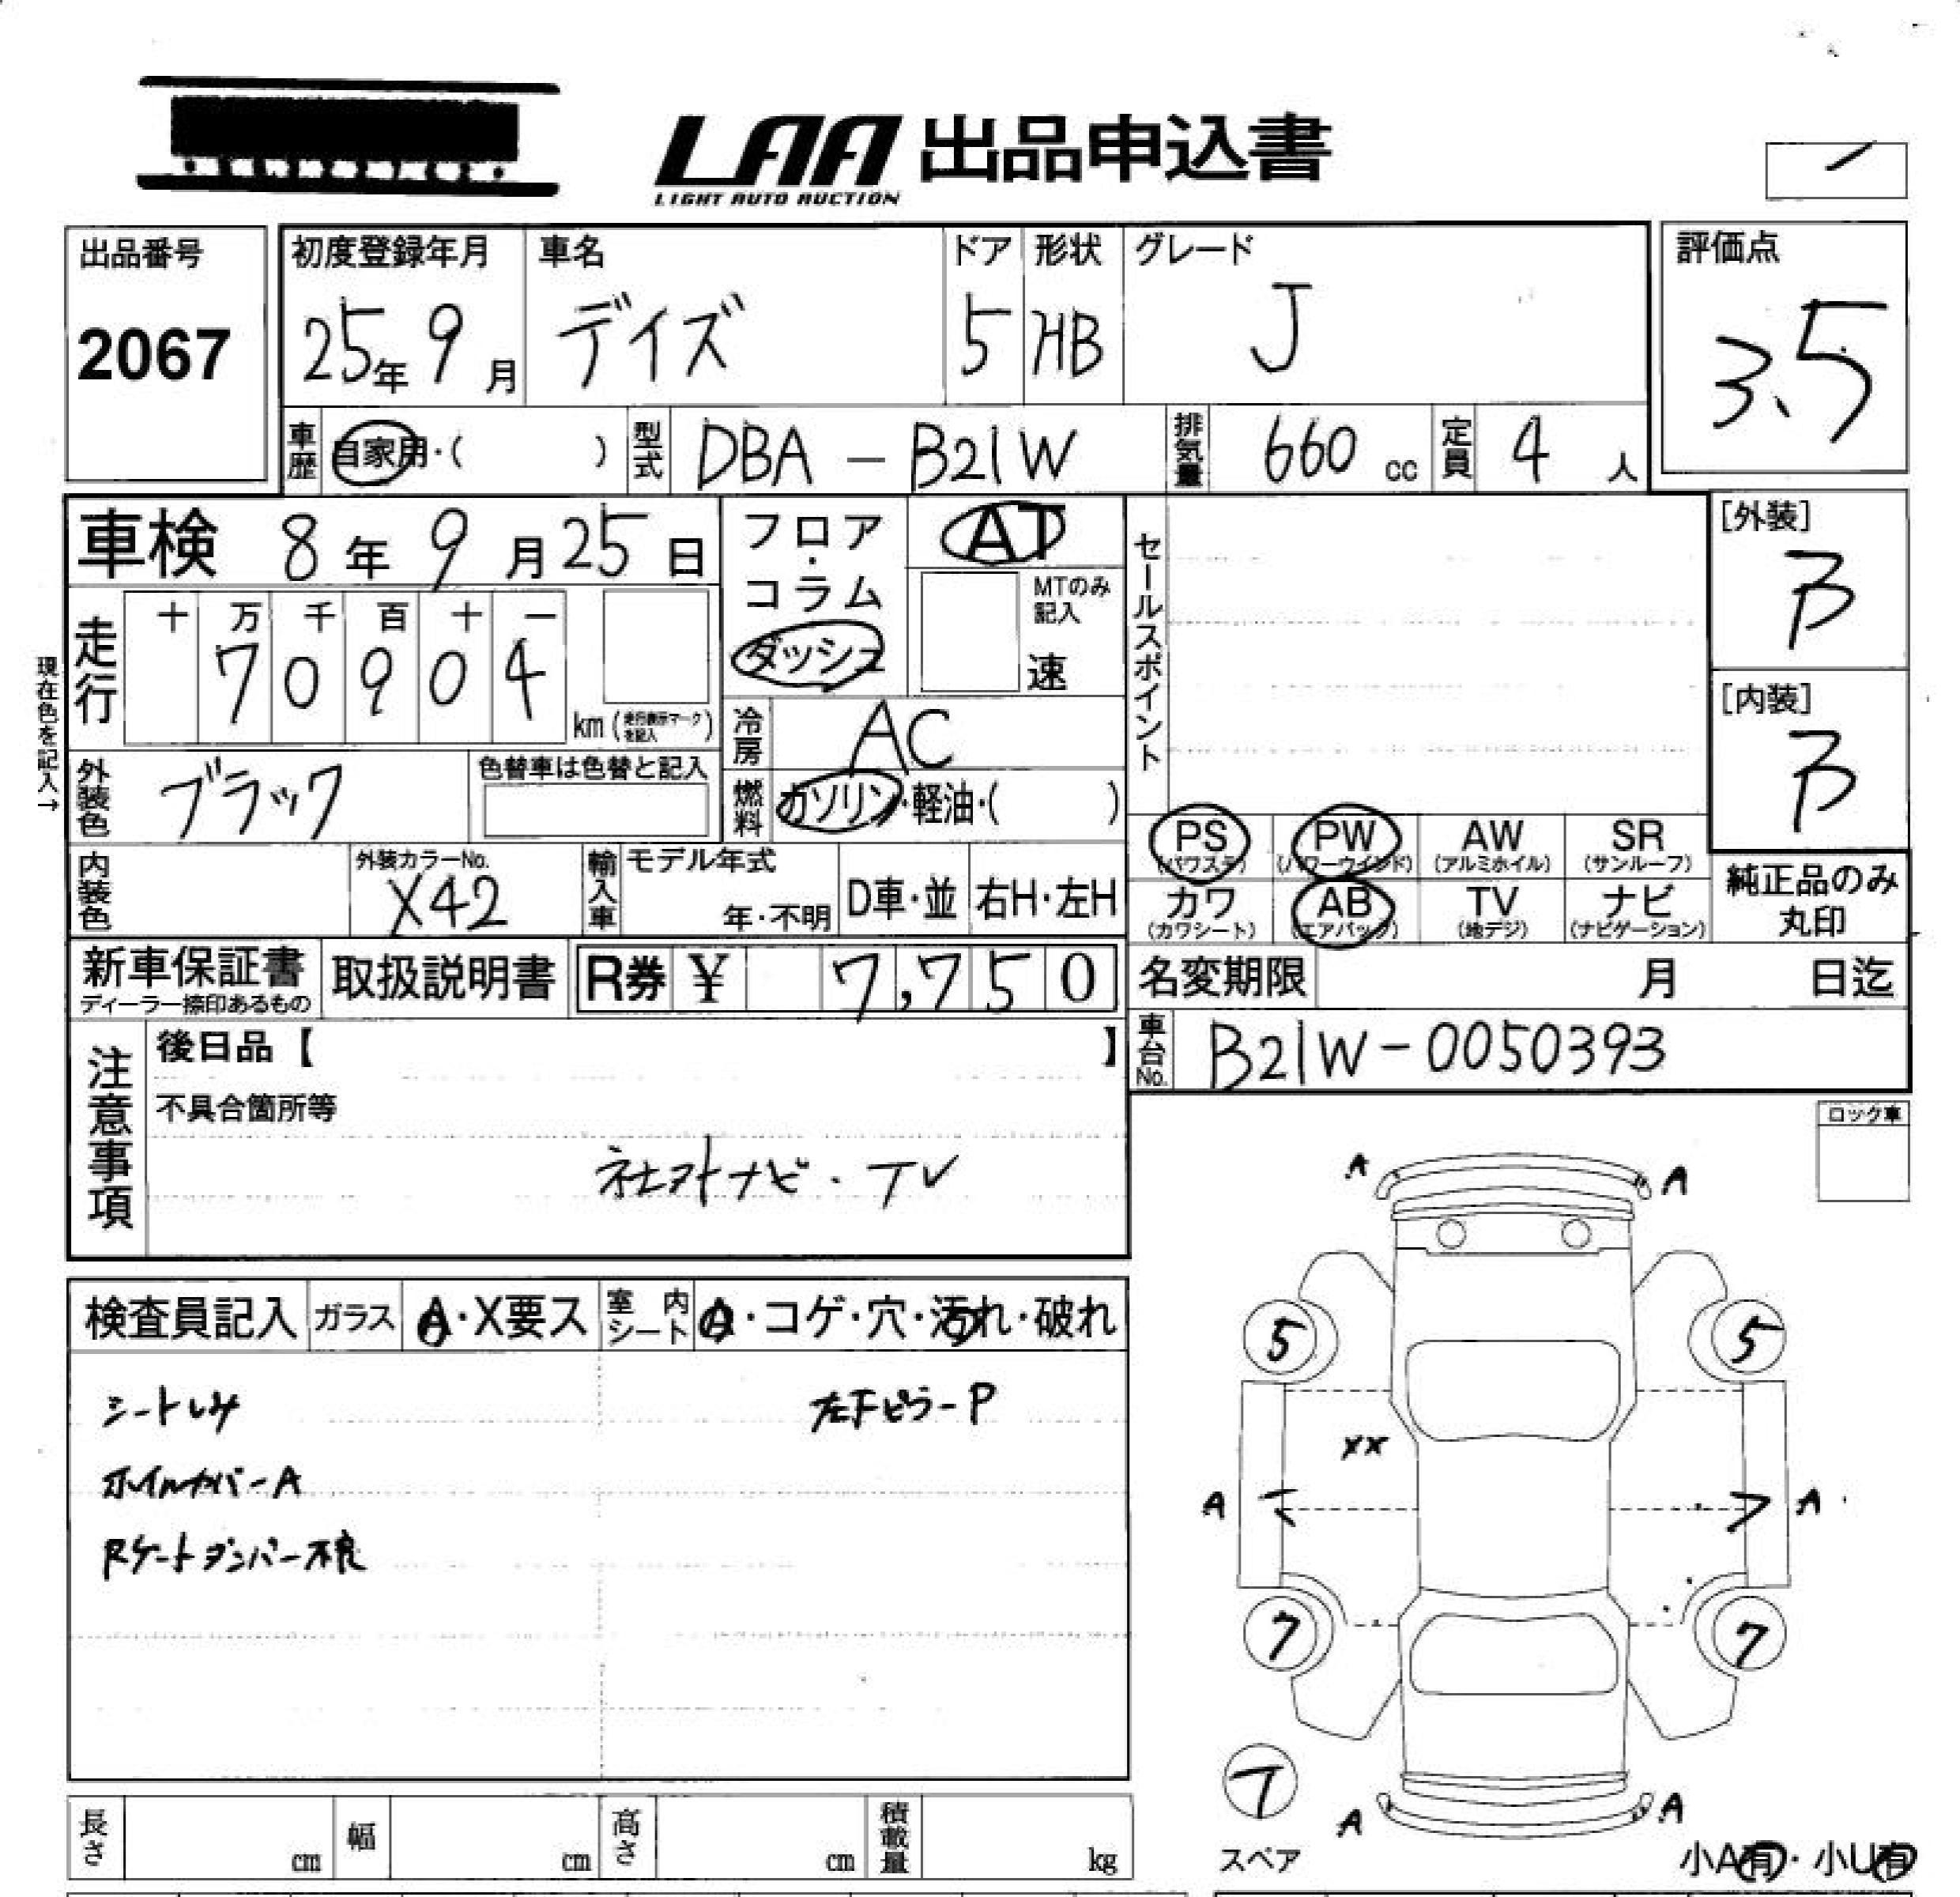 LAA 出品申込書
LIGHT AUTO AUCTION
出品番号
2067
初度登録年月
25年 9月
車名
デイズ
ドア
5
形状
HB
グレード
J
評価点
3.5
車歴 自家用・( )
型式 DBA - B21W
排気量 660 cc
定員 4 人
車検 8年 9月 25日
フロア・コラム
ダッシュ
AT
MTのみ記入
速
セールスポイント
[外装]
B
[内装]
B
現在色を記入→
走行
十 万 千 百 十 一
7 0 9 0 4
km (走行表示マークを記入)
冷房 AC
外装色 ブラック
色替車は色替と記入
燃料 ガソリン・軽油・( )
PS (パワステ)
PW (パワーウィンド)
AW (アルミホイル)
SR (サンルーフ)
カワ (カワシート)
AB (エアバッグ)
TV (地デジ)
ナビ (ナビゲーション)
純正品のみ丸印
内装色
外装カラーNo.
X42
輸入車
モデル年式
年・不明
D車・並
右H・左H
新車保証書
ディーラー捺印あるもの
取扱説明書
R券 ¥ 7,750
名変期限 月 日迄
車台No. B21W-0050393
注意事項
後日品【 】
不具合箇所等
社外ナビ・TV
ロック車
検査員記入
ガラス A・X要ス
室内シート A・コゲ・穴・汚れ・破れ
シートしみ
左Fピラー P
ホイルカバー A
Rゲートダンパー不良
A A
5 5
XX
A A
7 7
T
スペア
A A
小A有・小U有
長さ cm
幅 cm
高さ cm
積載量 kg